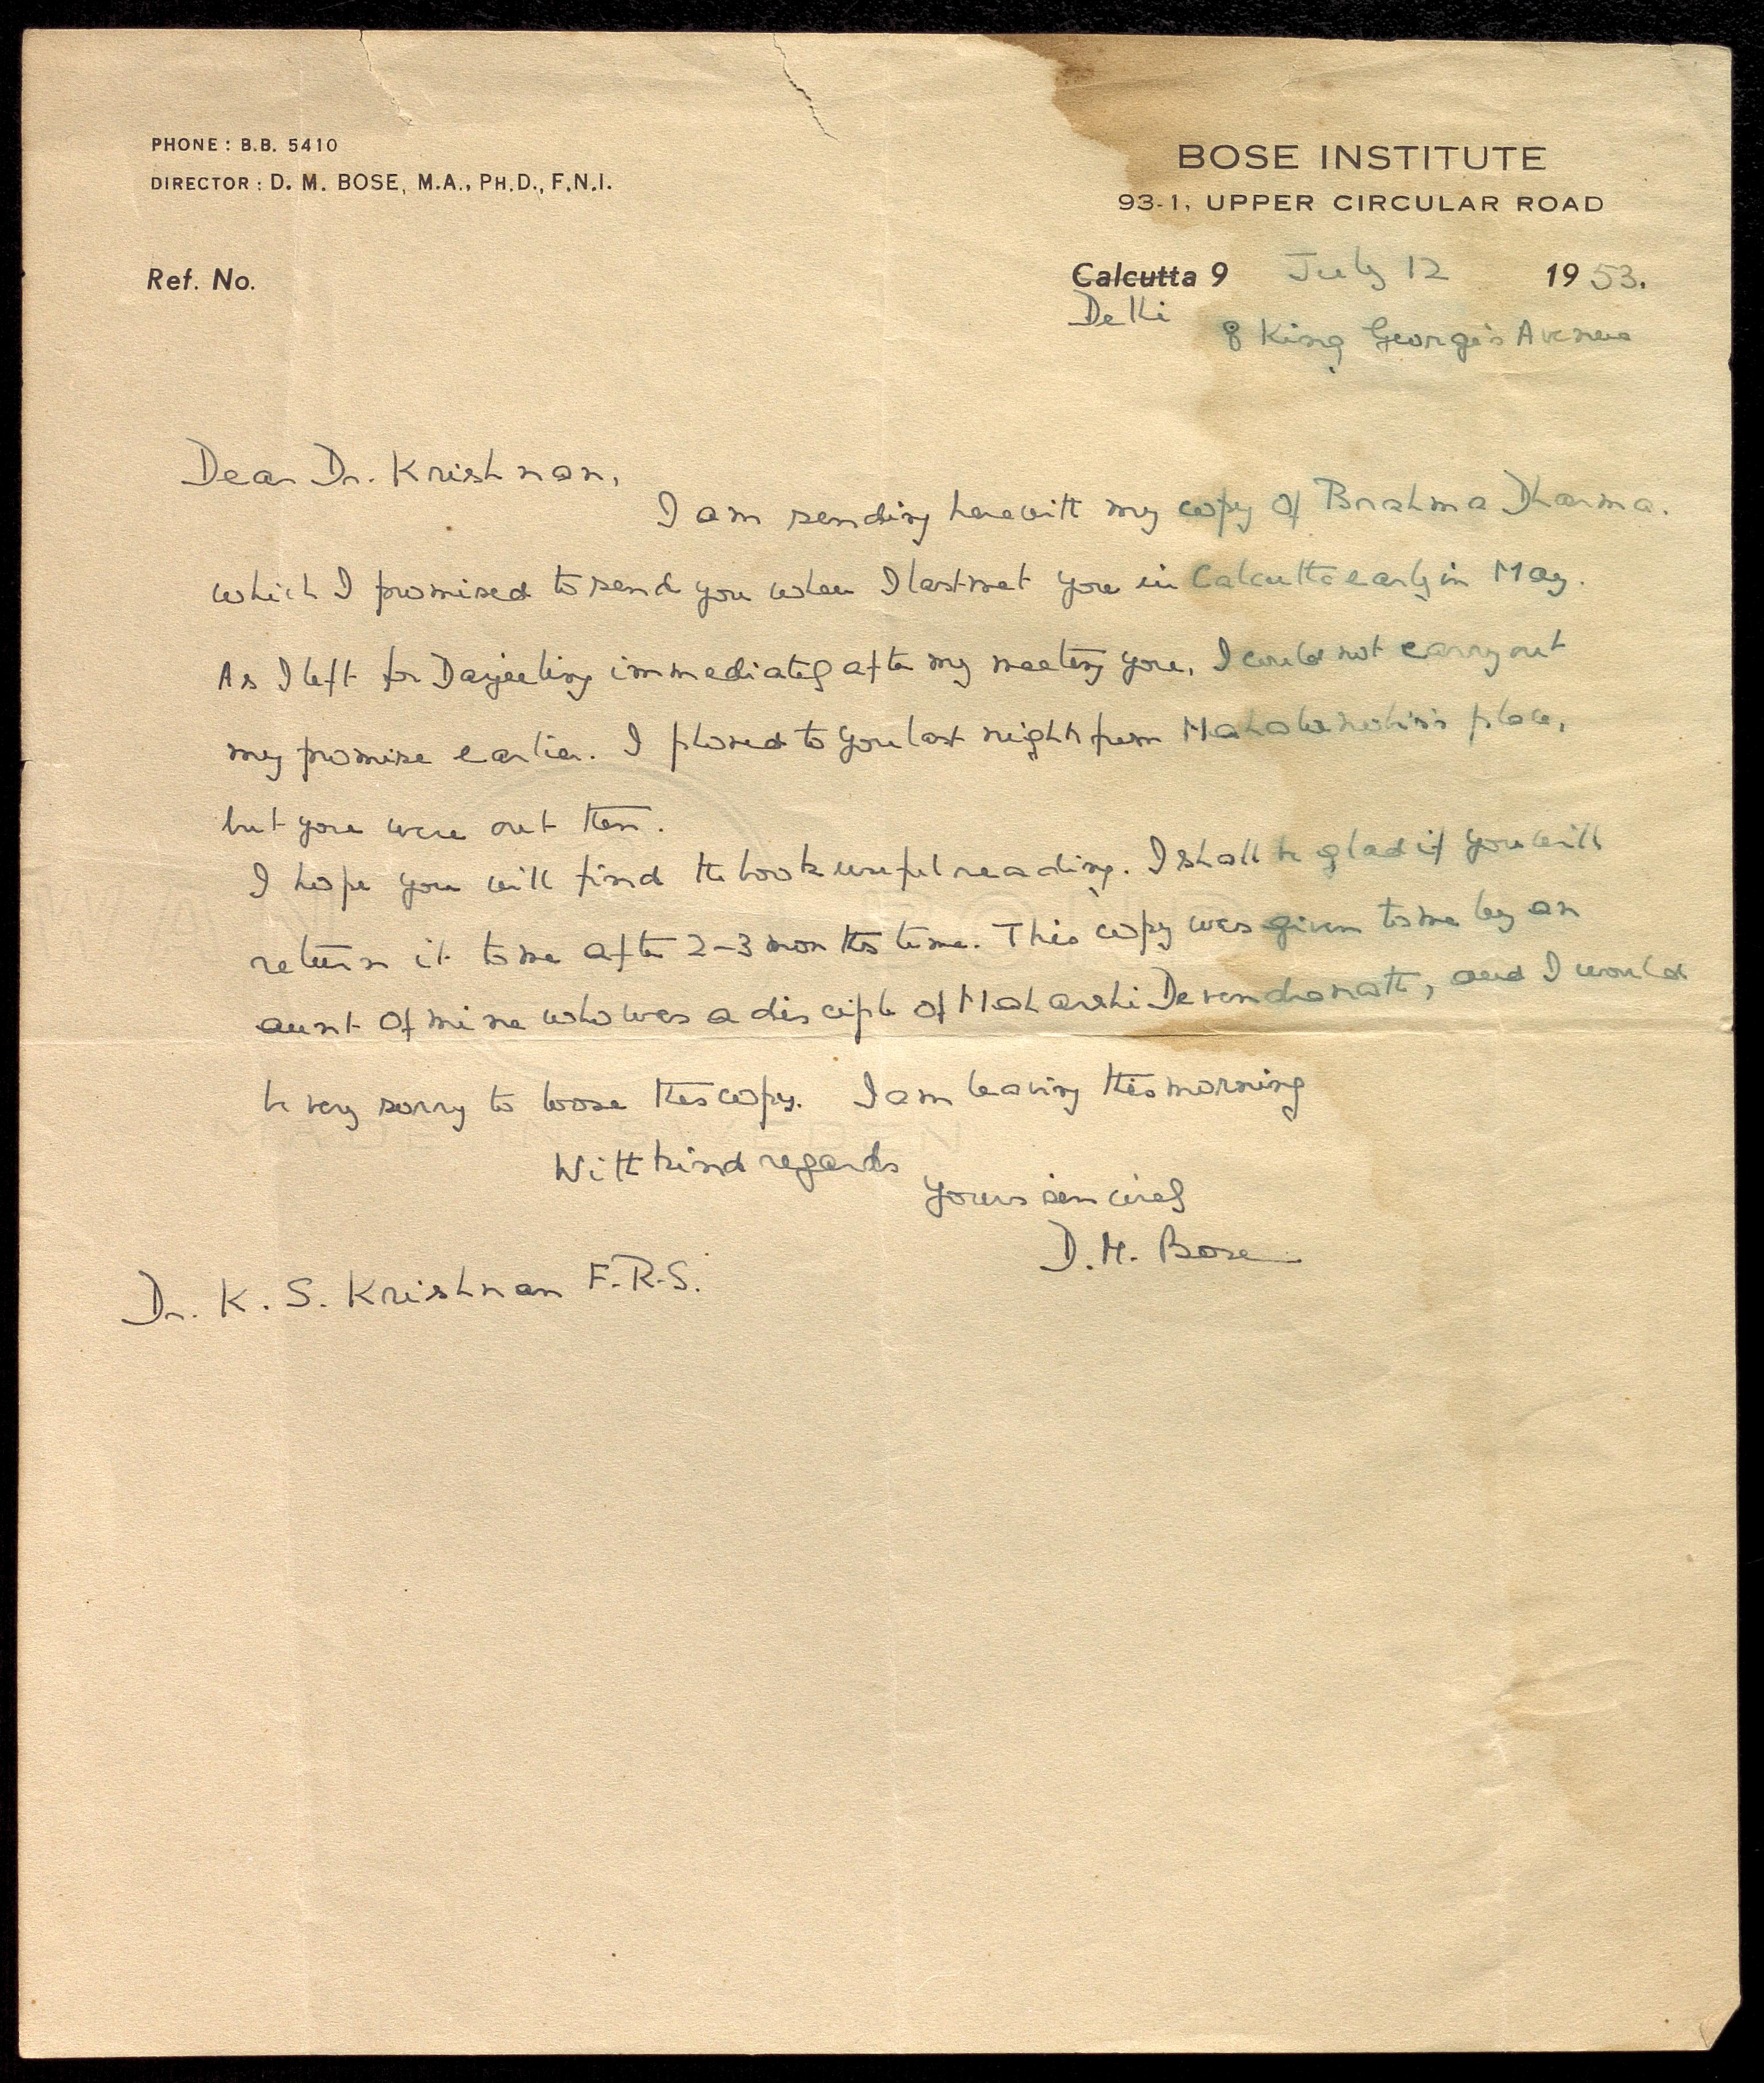 PHONE : B.B. 5410
DIRECTOR : D. M. BOSE, M.A., PH.D., F.N.I.
BOSE INSTITUTE
93-1, UPPER CIRCULAR ROAD
Ref. No.
Calcutta 9 July 12 1953.
Delhi
8 King George's Avenue
Dear Dr. Krishnan,
I am sending herewith my copy of Brahma Dharma.
which I promised to send you when I last met you in Calcutta early in May.
As I left for Darjeeling immediately after my meeting you, I could not carry out
my promise earlier. I phoned to you last night from Mahalanobis's place,
but you were out then.
I hope you will find the book useful reading. I shall be glad if you will
return it to me after 2-3 months time. This copy was given to me by an
aunt of mine who was a disciple of Maharshi Devendranath, and I would
be very sorry to loose this copy. I am leaving this morning
With kind regards
Yours sincerely
D. M. Bose
Dr. K. S. Krishnan F.R.S.